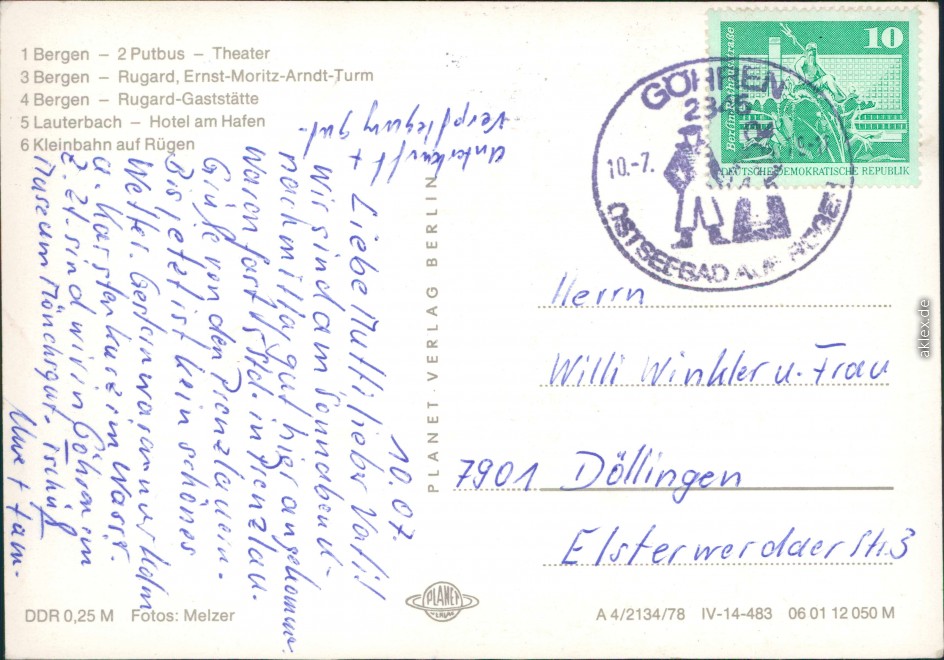 1 Bergen – 2 Putbus – Theater
3 Bergen – Rugard, Ernst-Moritz-Arndt-Turm
4 Bergen – Rugard-Gaststätte
5 Lauterbach – Hotel am Hafen
6 Kleinbahn auf Rügen
10.07.
Liebe Mutti, lieber Vati!
Wir sind am Sonnabend
nachmittag gut hier angekommen.
Waren fast 1 Std. in Prenzlau.
Grüße von den Prenzlauern.
Bis jetzt ist kein schönes
Wetter. Gestern waren nur Holm
u. Karsten kurz im Wasser.
Z. Zt. sind wir in Göhren im
Museum Mönchgut.
Uwe + Fam.
Unterkunft +
Verpflegung gut.
PLANET-VERLAG BERLIN
10
Berlin-Rathausstraße
DEUTSCHE DEMOKRATISCHE REPUBLIK
GÖHREN
2345
10.-7.
OSTSEEBAD AUF RÜGEN
Herrn
Willi Winkler u. Frau
7901 Döllingen
Elsterwerdaer Str. 3
PLANET
VERLAG
DDR 0,25 M Fotos: Melzer
A 4/2134/78 IV-14-483 06 01 12 050 M
aklex.de